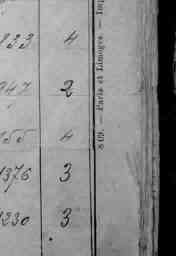 833 4
947 2
955 4
1376 3
1230 3
809. — Paris et Limoges. — Imp